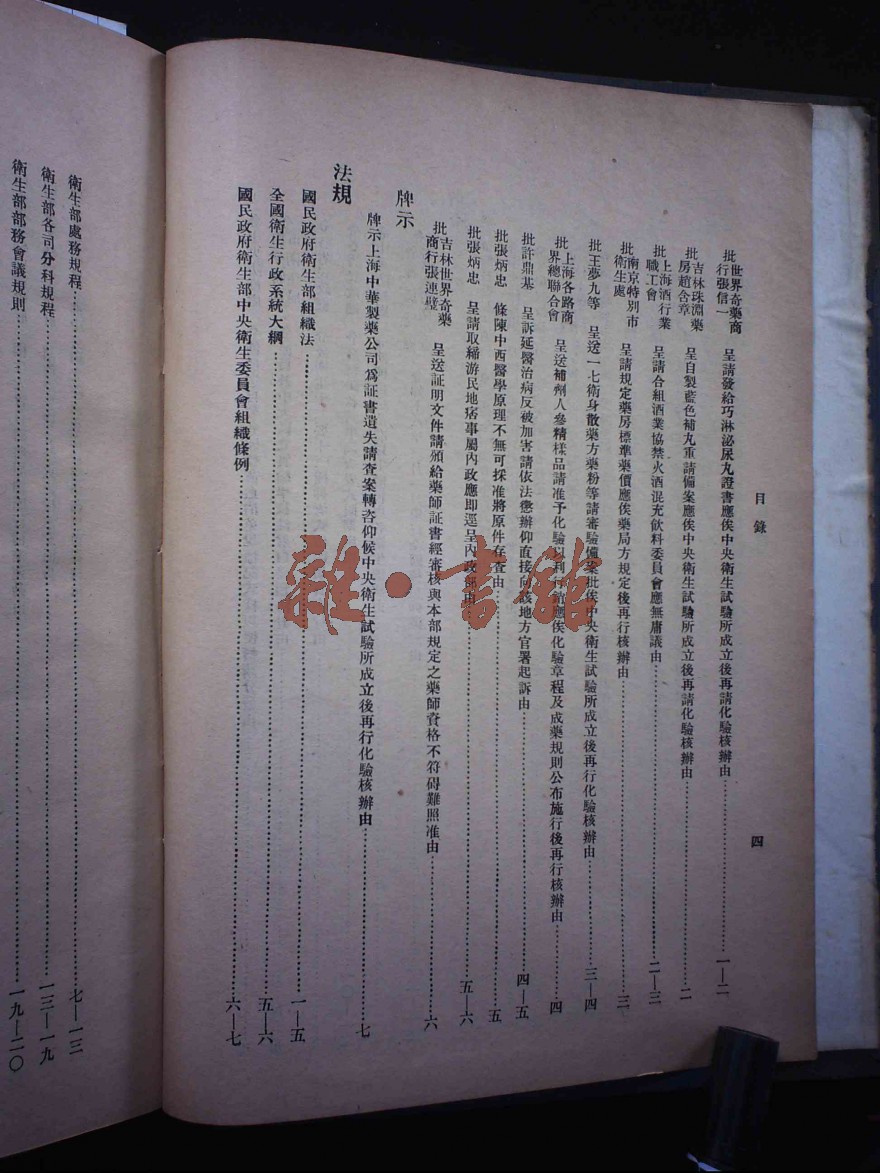 目錄
四
批世界奇藥商行張信一 呈請發給巧淋泌尿丸證書應俟中央衛生試驗所成立後再請化驗核辦由 一—二
批吉林珠淵藥房趙含章 呈自製藍色補丸重請備案應俟中央衛生試驗所成立後再請化驗核辦由 二
批上海酒行業職工會 呈請合組酒業協禁火酒混充飲料委員會應無庸議由 二—三
批南京特別市衛生處 呈請規定藥房標準藥價應俟藥局方規定後再行核辦由 三
批王夢九等 呈送一七衛身散藥方藥粉等請審驗備案批俟中央衛生試驗所成立後再行化驗核辦由 三—四
批上海各路商界總聯合會 呈送補劑人參精樣品請准予化驗以利行銷應俟化驗章程及成藥規則公布施行後再行核辦由 四
批許鼎基 呈訴延醫治病反被加害請依法懲辦仰直接向該地方官署起訴由 四—五
批張炳忠 條陳中西醫學原理不無可採准將原件存查由 五
批張炳忠 呈請取締游民地痞事屬內政應即逕呈內政部由 五—六
批吉林世界奇藥商行張連璧 呈送証明文件請頒給藥師証書經審核與本部規定之藥師資格不符碍難照准由 六
牌示
牌示上海中華製藥公司為証書遺失請查案轉咨仰候中央衛生試驗所成立後再行化驗核辦由 七
法規
國民政府衛生部組織法 一—五
全國衛生行政系統大綱 五—六
國民政府衛生部中央衛生委員會組織條例 六—七
衛生部處務規程 七—一三
衛生部各司分科規程 一三—一九
衛生部部務會議規則 一九—二〇
雜·書館